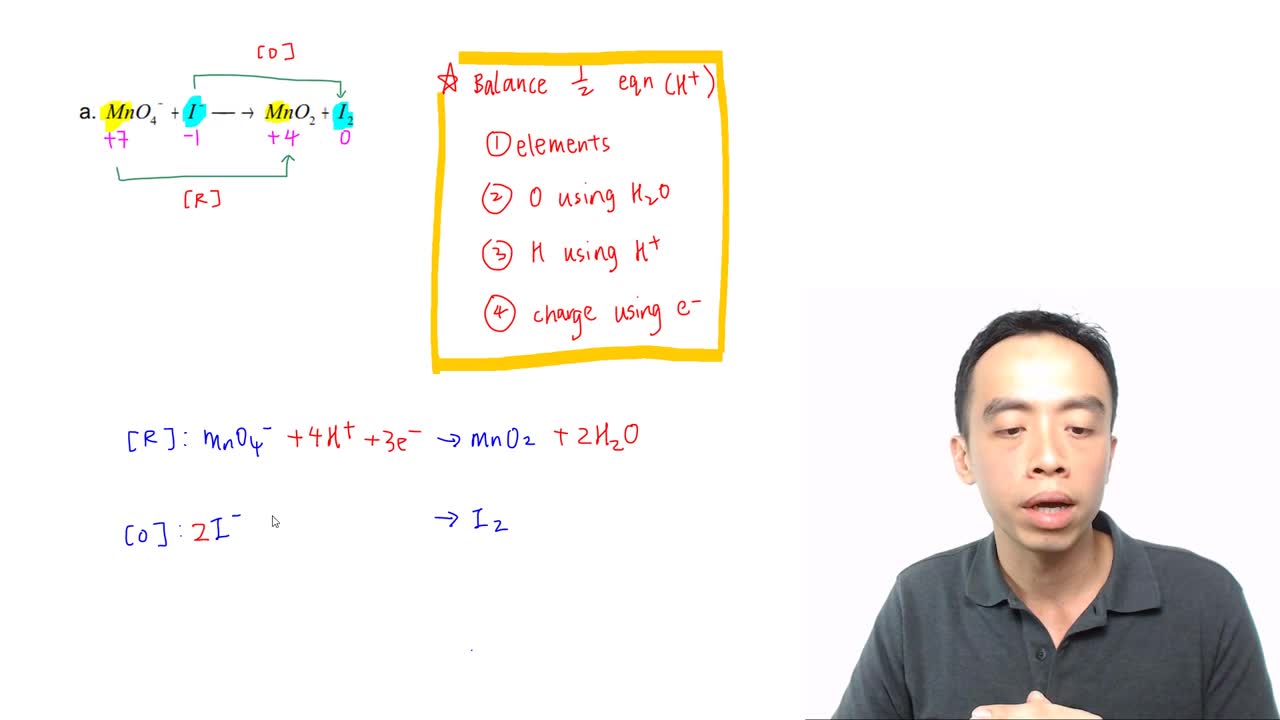 [O]
a. MnO₄⁻ + I⁻ —→ MnO₂ + I₂
+7 -1 +4 0
[R]
☆ Balance ½ eqn (H⁺)
① elements
② O using H₂O
③ H using H⁺
④ charge using e⁻
[R]: MnO₄⁻ +4H⁺ +3e⁻ → MnO₂ +2H₂O
[O]: 2I⁻ → I₂